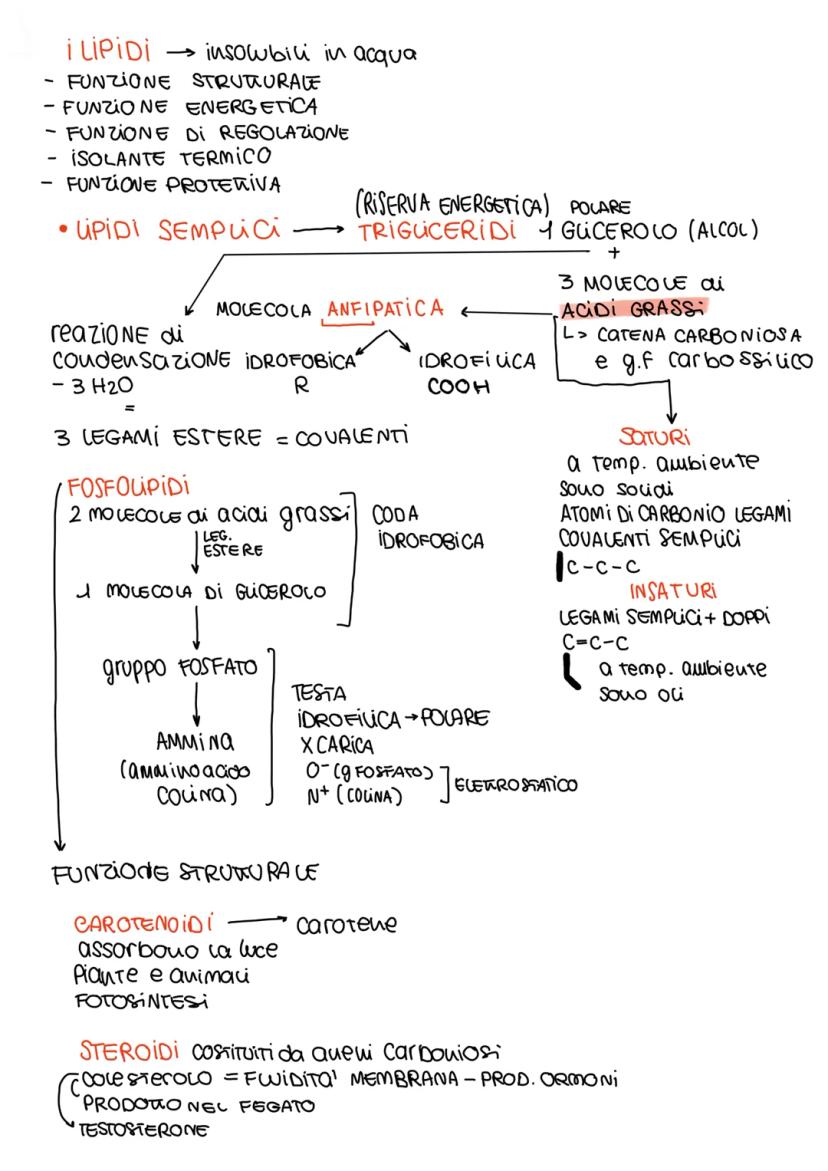 i LIPIDI → insolubili in acqua
- FUNZIONE STRUTTURALE
- FUNZIONE ENERGETICA
- FUNZIONE DI REGOLAZIONE
- ISOLANTE TERMICO
- FUNZIONE PROTETTIVA
(RISERVA ENERGETICA) POLARE
• LIPIDI SEMPLICI → TRIGLICERIDI 1 GLICEROLO (ALCOL)
+
3 MOLECOLE di
ACIDI GRASSI
MOLECOLA ANFIPATICA
L> CATENA CARBONIOSA
e g.f carbossilico
reazione di
condensazione
- 3 H2O
=
3 LEGAMI ESTERE = COVALENTI
IDROFOBICA
R
IDROFILICA
COOH
SATURI
a temp. ambiente
sono solidi
ATOMI DI CARBONIO LEGAMI
COVALENTI SEMPLICI
C-C-C
INSATURI
LEGAMI SEMPLICI + DOPPI
C=C-C
a temp. ambiente
sono oli
FOSFOLIPIDI
2 MOLECOLE di acidi grassi
LEG.
ESTERE
1 MOLECOLA DI GLICEROLO
CODA
IDROFOBICA
gruppo FOSFATO
AMMINA
(amminoacido
COLINA)
TESTA
IDROFILICA → POLARE
X CARICA
O- (g FOSFATO)
N+ (COLINA)
ELETTROSTATICO
FUNZIONE STRUTTURALE
CAROTENOIDI → carotene
assorbono la luce
Piante e animali
FOTOSINTESI
STEROIDI COSTITUITI da anelli Carboniosi
COLESTEROLO = FLUIDITA' MEMBRANA - PROD. ORMONI
PRODOTTO NEL FEGATO
TESTOSTERONE